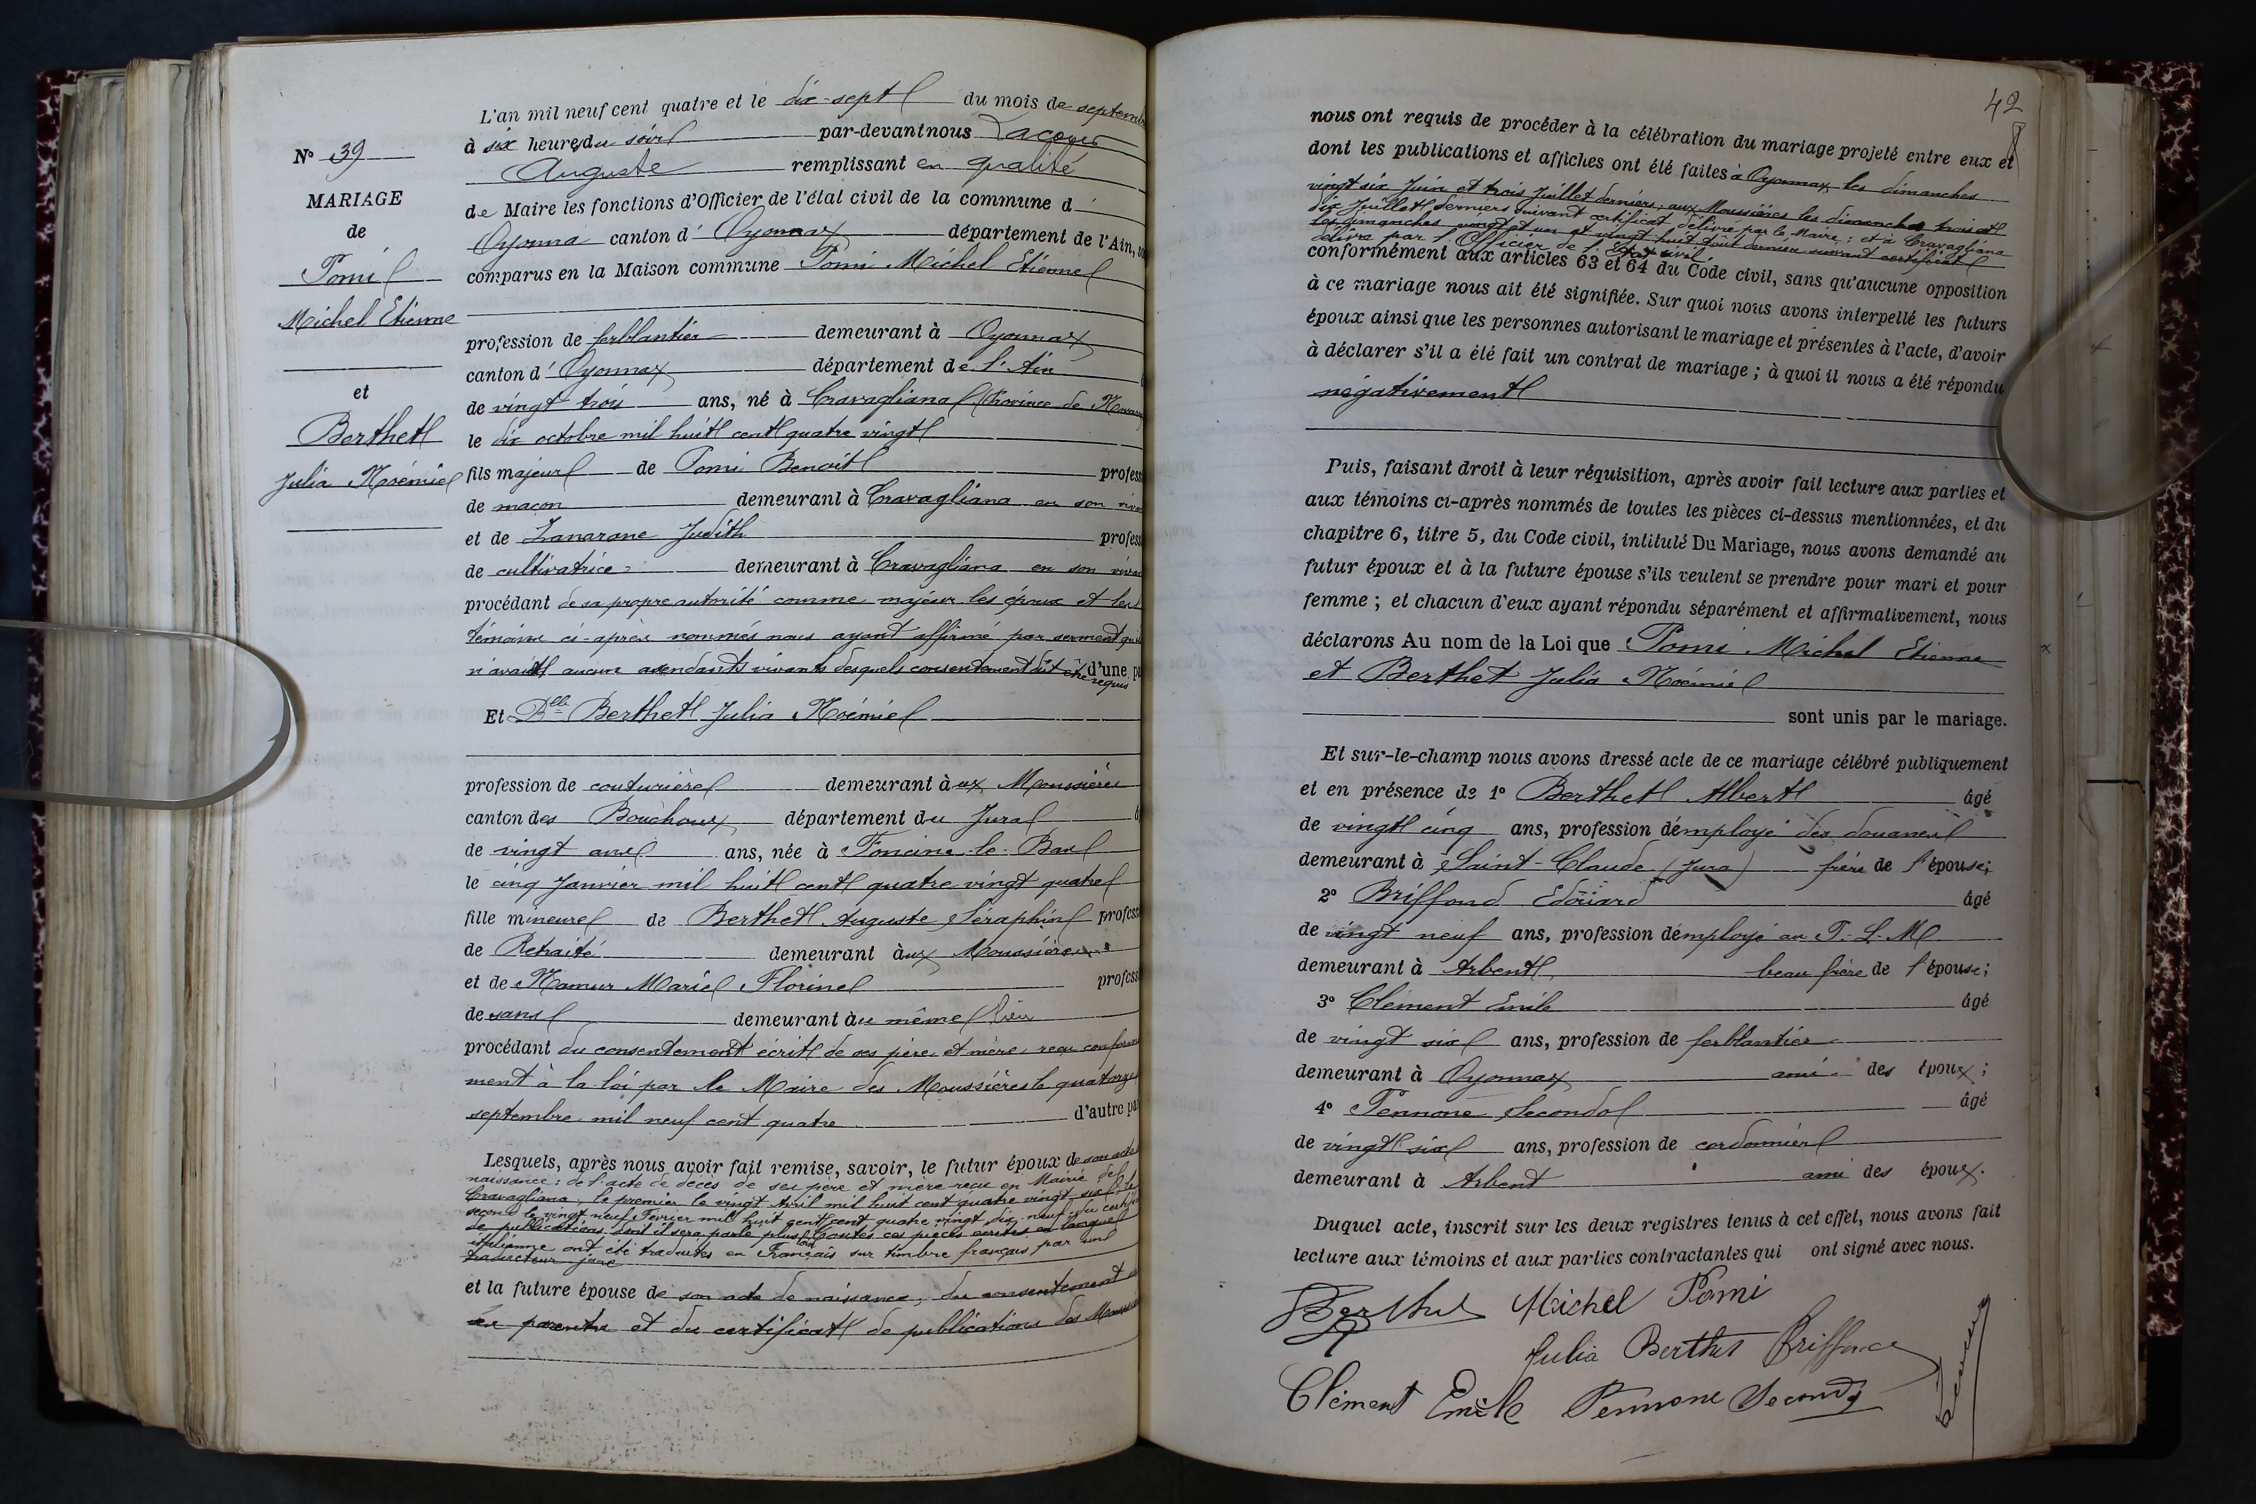 L'an mil neuf cent quatre et le dix-sept du mois de septemb
à six heures du soir par-devant nous Lacoyer
Auguste remplissant en qualité
de Maire les fonctions d'Officier de l'état civil de la commune d
Oyonna canton d' Oyonnax département de l'Ain,
comparus en la Maison commune Pomi Michel Etienne
profession de ferblantier demeurant à Oyonnax
canton d' Oyonnax département de l'Ain
de vingt trois ans, né à Cravagliana (Province de Novare
le dix octobre mil huit cent quatre vingt
fils majeur de Pomi Benoit profess
de maçon demeurant à Cravagliana en son viva
et de Zanarane Judith profess
de cultivatrice demeurant à Cravagliana en son viva
procédant de sa propre autorité comme majeur les époux et les
témoins ci-après nommés nous ayant affirmé par serment qu'il
n'avait aucun ascendants vivants desquels consentement dût être requis d'une pa
Et Dlle Berthet Julia Noémie
profession de couturière demeurant à ux Moussières
canton des Bouchoux département du Jura
de vingt ans ans, née à Foncine-le-Bas
le cinq Janvier mil huit cent quatre vingt quatre
fille mineure de Berthet Auguste Séraphin profess
de Retraité demeurant à ux Moussières
et de Namur Marie Florine profess
de sans demeurant à u même lieu
procédant du consentement écrit de ses père et mère, reçu conformé
ment à la loi par le Maire des Moussières le quatorze
septembre mil neuf cent quatre d'autre pa
Lesquels, après nous avoir fait remise, savoir, le futur époux de son acte
naissance; de l'acte de décès de ses père et mère reçu en Mairie de
Cravagliana, le premier le vingt Avril mil huit cent quatre vingt six le
second le vingt neuf Février mil huit cent quatre vingt dix neuf; du certif
de publications dont il sera parlé plus loin toutes ces pièces écrites en langue
italienne ont été traduites en Français sur timbre français par un
traducteur juré
et la future épouse de son acte de naissance, du consentement
de parents et du certificat de publications des Moussi
N° 39
MARIAGE
de
Pomi
Michel Etienne
et
Berthet
Julia Noémie
42
nous ont requis de procéder à la célébration du mariage projeté entre eux et
dont les publications et affiches ont été faites à Oyonnax les dimanches
vingt six Juin et trois Juillet derniers; aux Moussières les dimanches trois et
dix Juillet derniers suivant certificat délivré par le Maire; et à Cravagliana
les dimanches vingt et un et vingt huit Août dernier suivant certificat
délivré par l'Officier de l'Etat civil
conformément aux articles 63 et 64 du Code civil, sans qu'aucune opposition
à ce mariage nous ait été signifiée. Sur quoi nous avons interpellé les futurs
époux ainsi que les personnes autorisant le mariage et présentes à l'acte, d'avoir
à déclarer s'il a été fait un contrat de mariage; à quoi il nous a été répondu
négativement
Puis, faisant droit à leur réquisition, après avoir fait lecture aux parties et
aux témoins ci-après nommés de toutes les pièces ci-dessus mentionnées, et du
chapitre 6, titre 5, du Code civil, intitulé Du Mariage, nous avons demandé au
futur époux et à la future épouse s'ils veulent se prendre pour mari et pour
femme; et chacun d'eux ayant répondu séparément et affirmativement, nous
déclarons Au nom de la Loi que Pomi Michel Etienne
et Berthet Julia Noémie
sont unis par le mariage.
Et sur-le-champ nous avons dressé acte de ce mariage célébré publiquement
et en présence de 1° Berthet Albert âgé
de vingt cinq ans, profession d'employé des douanes
demeurant à Saint-Claude (Jura) frère de l'épouse;
2° Briffond Edouard âgé
de vingt neuf ans, profession d'employé au P.-L.-M
demeurant à Arbent beau frère de l'épouse;
3° Clément Emile âgé
de vingt six ans, profession de ferblantier
demeurant à Oyonnax ami des époux;
4° Pennone Secondo âgé
de vingt six ans, profession de cordonnier
demeurant à Arbent ami des époux.
Duquel acte, inscrit sur les deux registres tenus à cet effet, nous avons fait
lecture aux témoins et aux parties contractantes qui ont signé avec nous.
Berthet Michel Pomi
Julia Berthet Briffond
Clément Emile Pennone Secondo